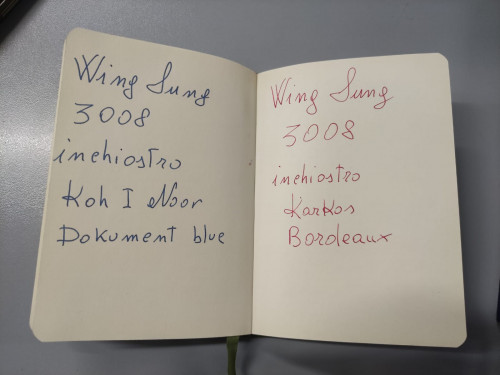 Wing Sung
3008
inchiostro
Koh I Noor
Dokument blue
Wing Sung
3008
inchiostro
Karkos
Bordeaux